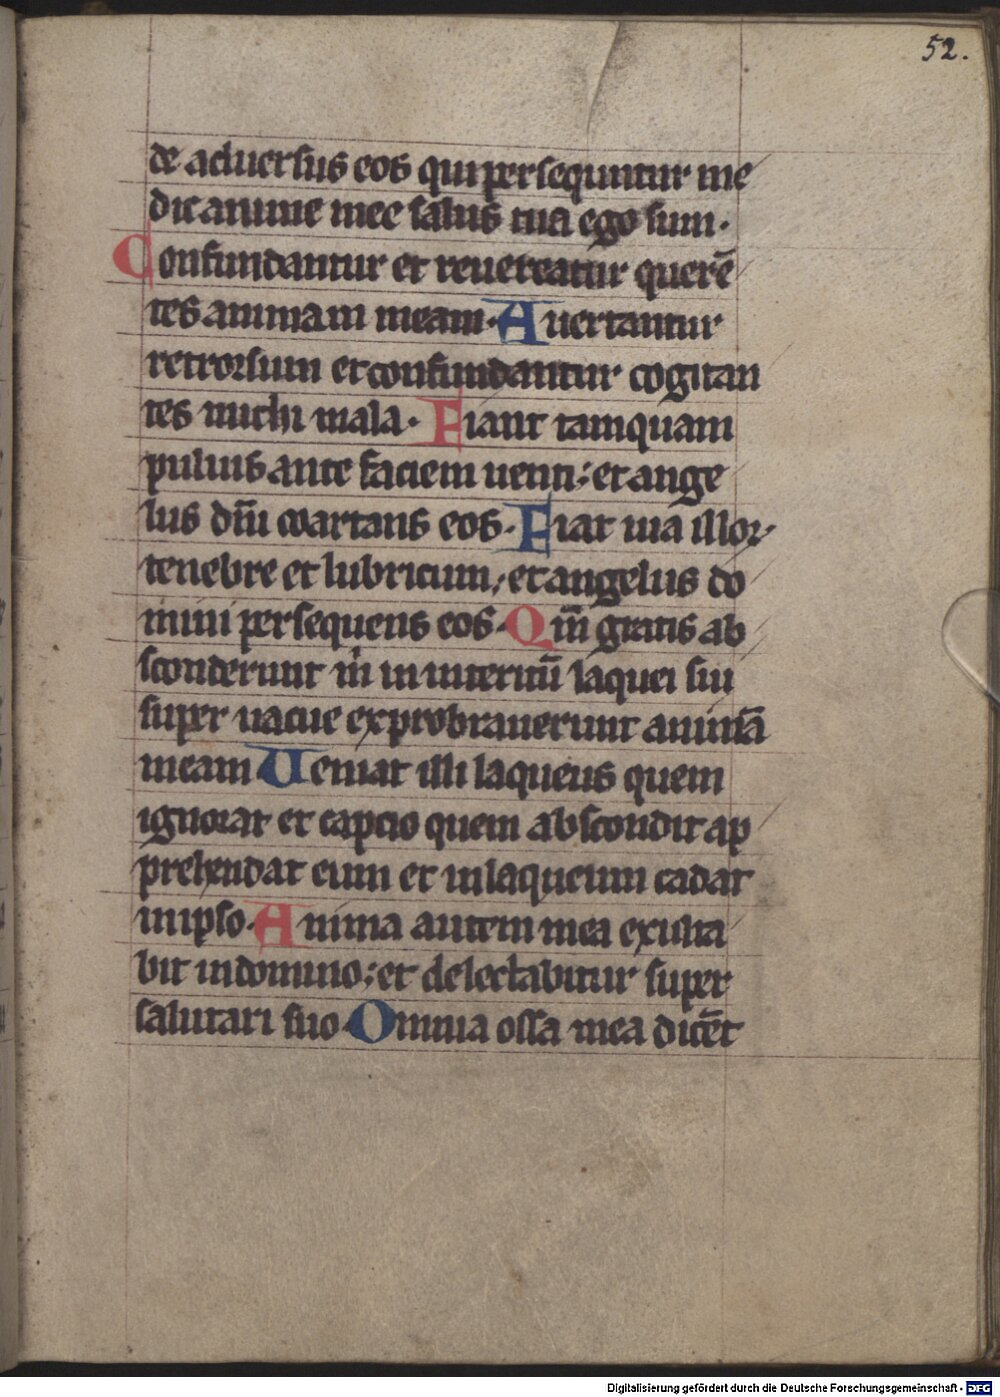 52.
de aduersus eos qui persequntur me
dic anime mee salus tua ego sum.
Confundantur et reuereatur querē
tes animam meam. Auertantur
retrorsum et confundantur cogitan
tes michi mala. Fiant tamquam
puluis ante faciem uenti; et ange
lus dn̄i coartans eos. Fiat uia illor
tenebre et lubricum, et angelus do
mini persequens eos. Qm̄ gratis ab
sconderunt m̄ in interitū laquei sui
super uacue exprobrauerunt animā
meam Ueniat illi laqueus quem
ignorat et captio quem abscondit ap
prehendat eum et in laqueum cadat
in ipso. Anima autem mea exulta
bit in domino; et delectabitur super
salutari suo Omnia ossa mea dicēt
Digitalisierung gefördert durch die Deutsche Forschungsgemeinschaft - DFG